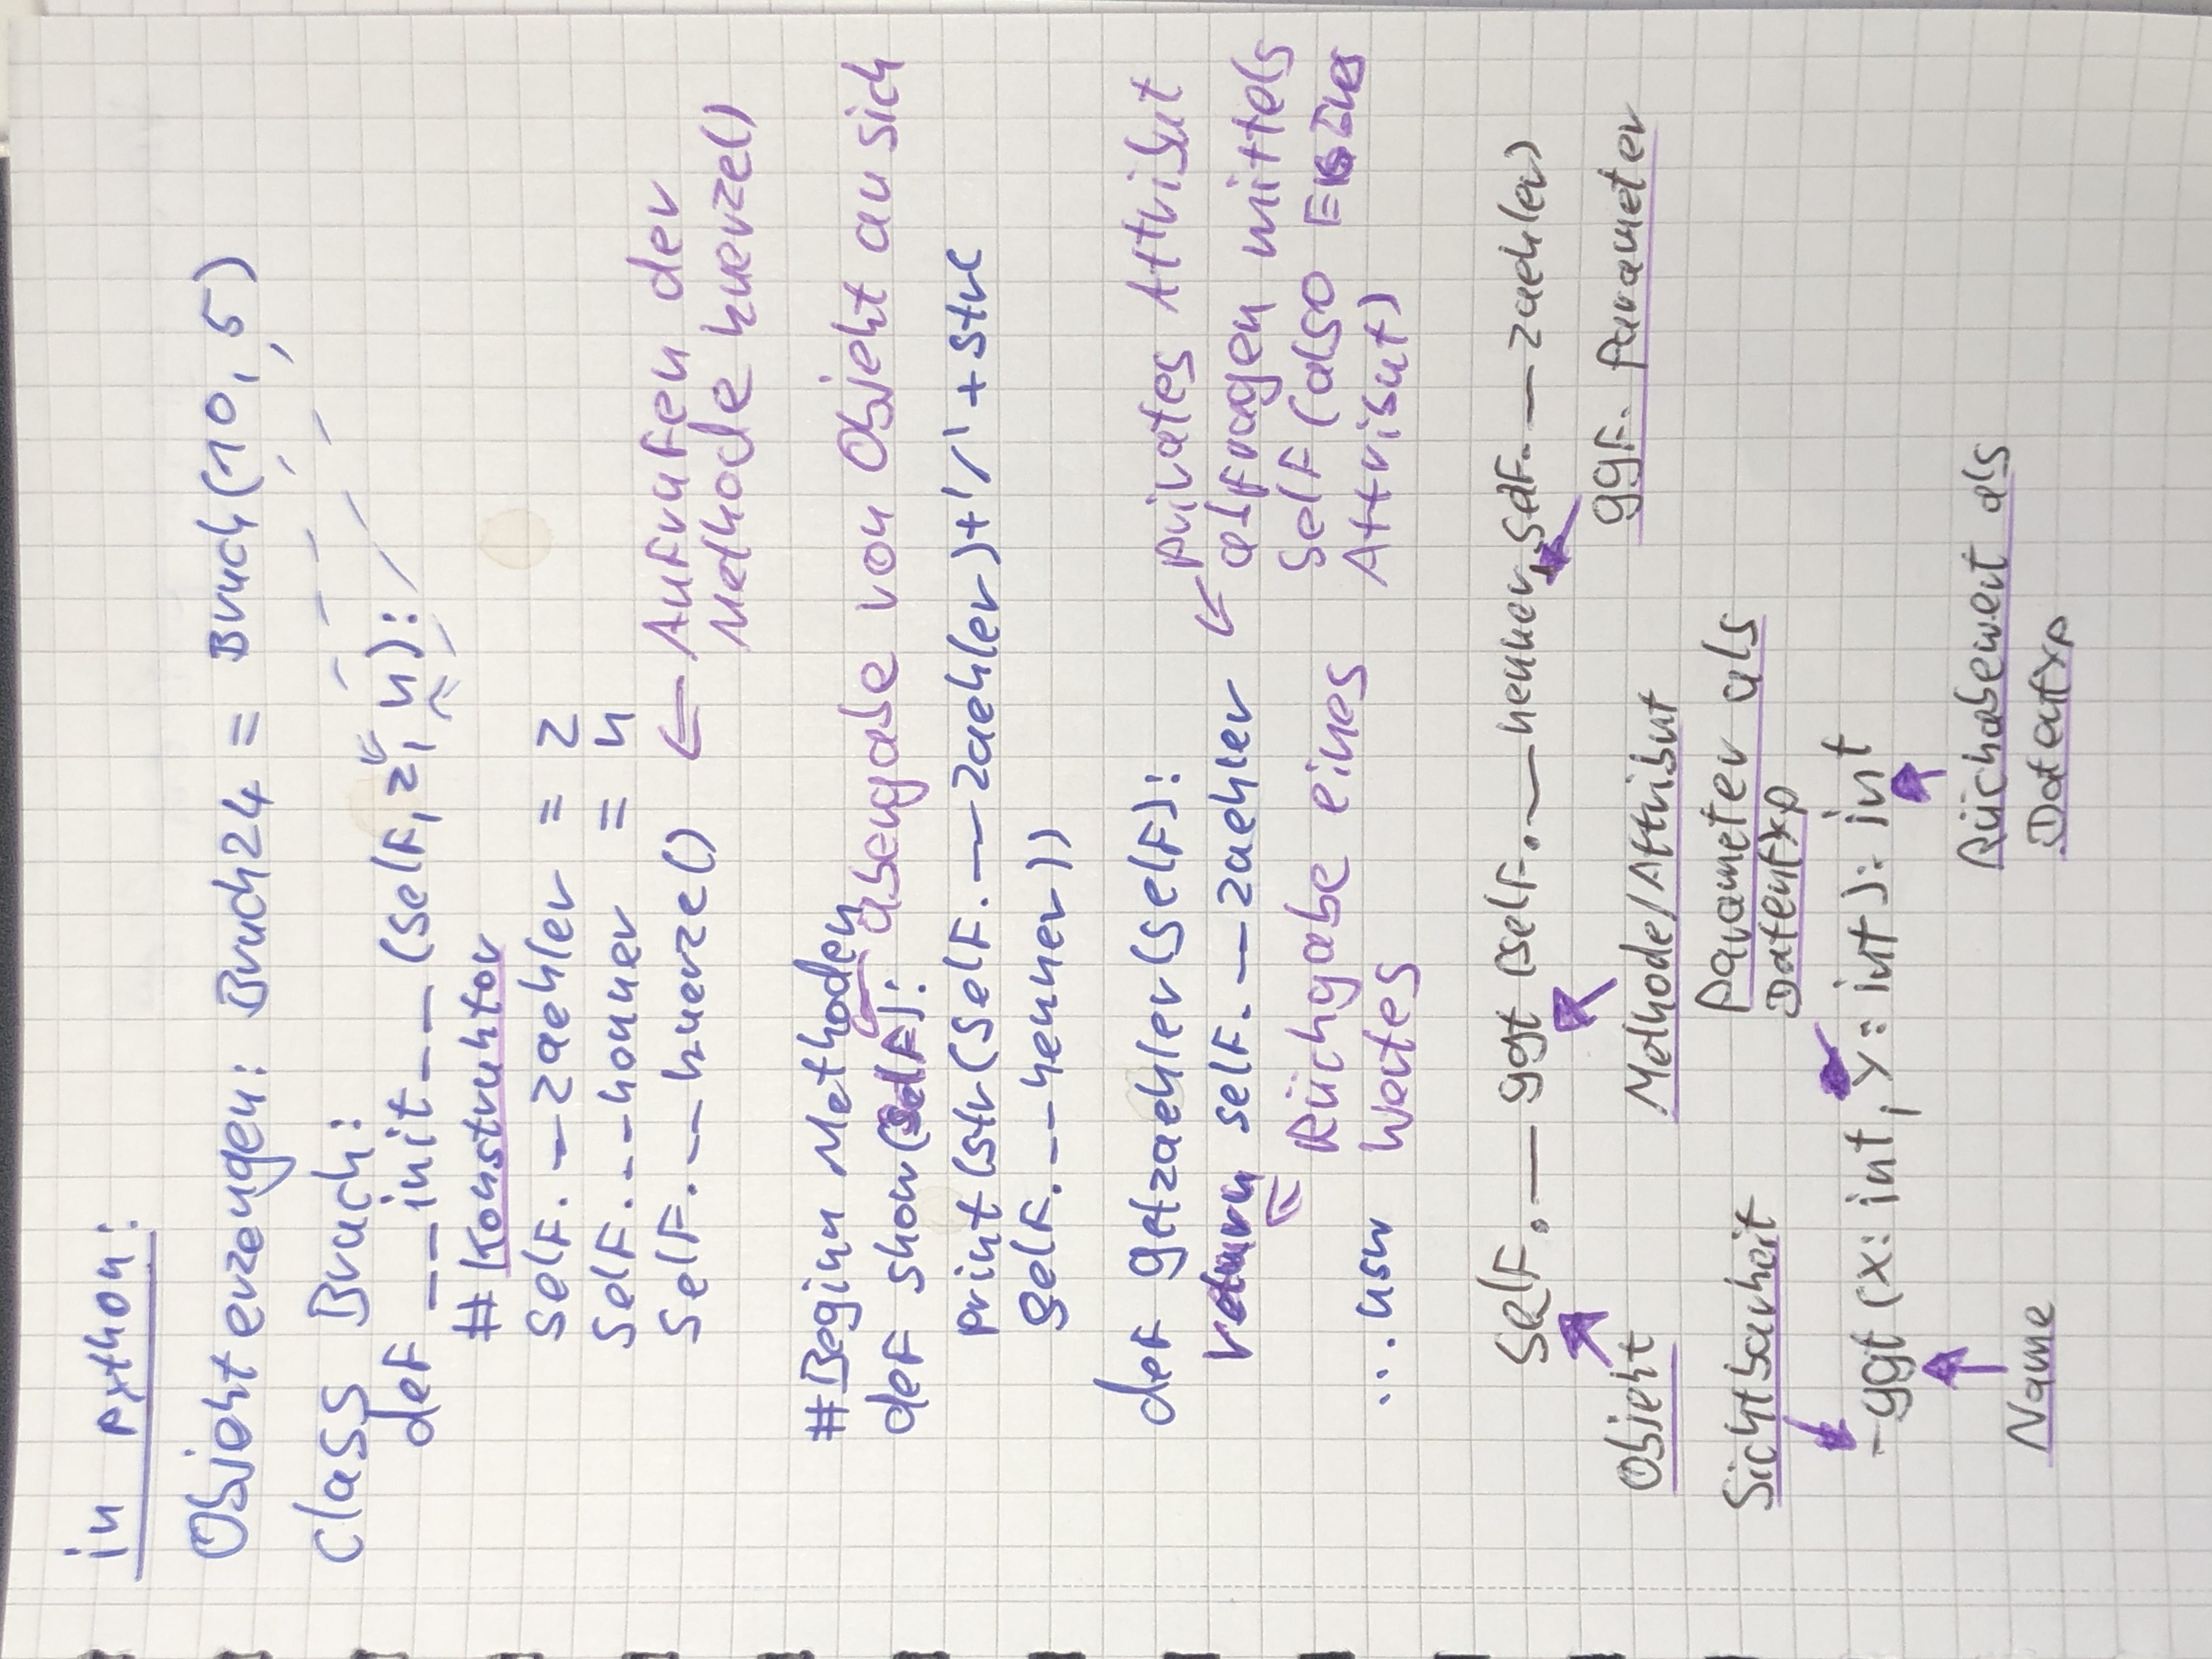 in python:
Objekt erzeugen: Bruch24 = Bruch(10, 5)
class Bruch:
def __init__(self, z, n):
# Konstruktor
self.__zaehler = z
self.__nenner = n
self.__kuerze() ← Aufrufen der
Methode kuerze()
#Beginn Methoden
def show(self): ← übergabe von Objekt an sich
print(str(self.__zaehler)+'/'+str(
self.__nenner))
def getzaehler(self):
return self.__zaehler
← privates Attribut
abfragen mittels
self (also
Attribut)
Rückgabe eines
Wertes
...usw
self.__ggt(self.__nenner, self.__zaehler)
Objekt
Methode/Attribut
ggf. Parameter
Sichtbarkeit
Parameter als
Datentyp
-ggt(x: int, y: int): int
Name
Rückabewert als
Datentyp